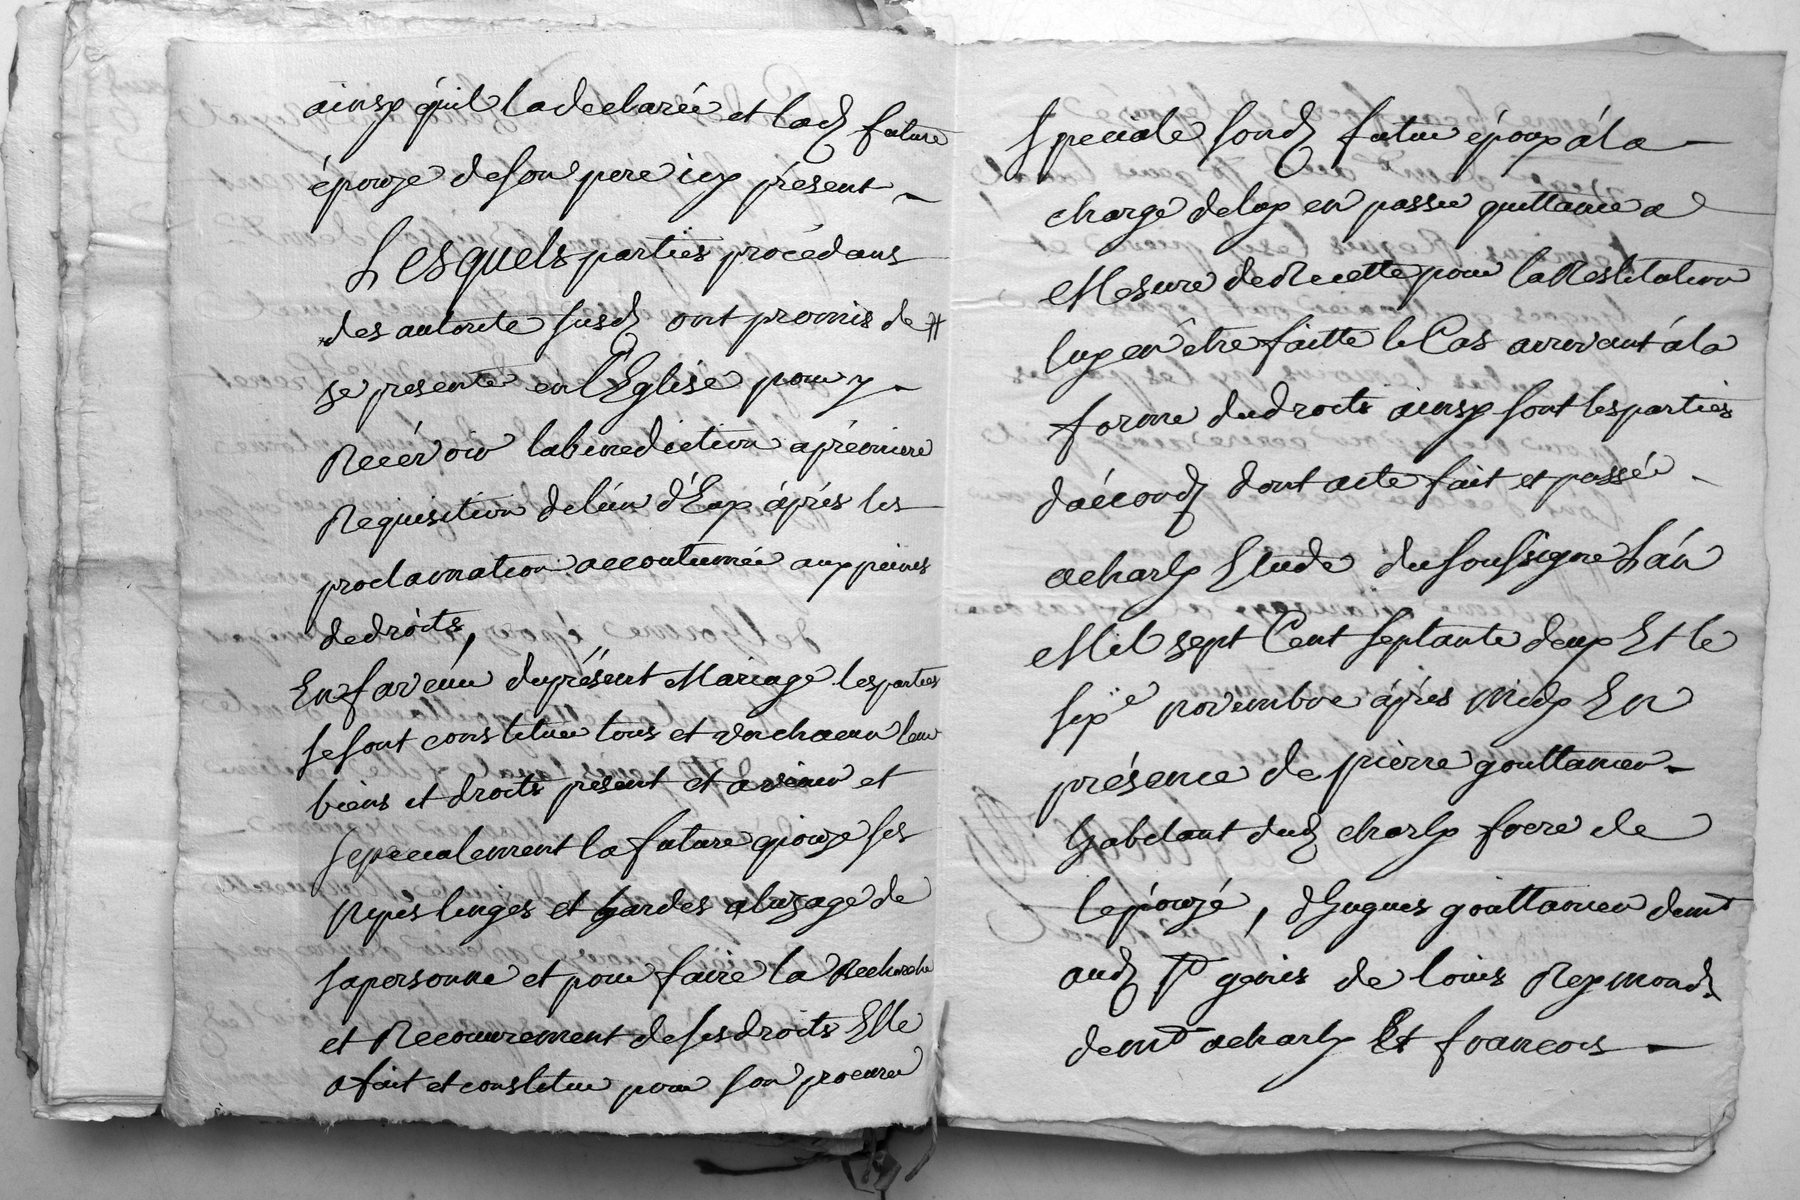 ainsy quil la declarée et lad future
épouze de son pere icy présent
Lesquels parties procédans
des autorité susd ont promis de
se presenter en l'Eglise pour y
Recévoir la benediction a prémiere
Requisition de lún d'Eux áprés les
proclamation accoutumée aux peines
de droits,
En favéur du présent Mariage les parties
se sont constitué tous et un chacun leur
biens et droits présent et a venir et
sepecialement la future epouze ses
nipes linges et hardes a luzage de
sa personne et pour faire la Recherche
et Recouvrement de ses droits Elle
a fait et constitue pour son procureur
speciale sond futur époux á la
charge de luy en passer quittance a
Mesure de Recette pour la Restitution
luy en être faitte le Cas arrivant á la
forme du droits ainsy sont les parties
dáccond dont acte fait et passé
a charly Etude du soussigne Lán
Mil sept Cent septante deux Et le
six novembre áprés midy En
présence de pierre gouttanier
habitant dud charly frere de
lépouzé, d'hugues gouttanier demt
aud st genis de louis Reymond
demt a charly Et francois